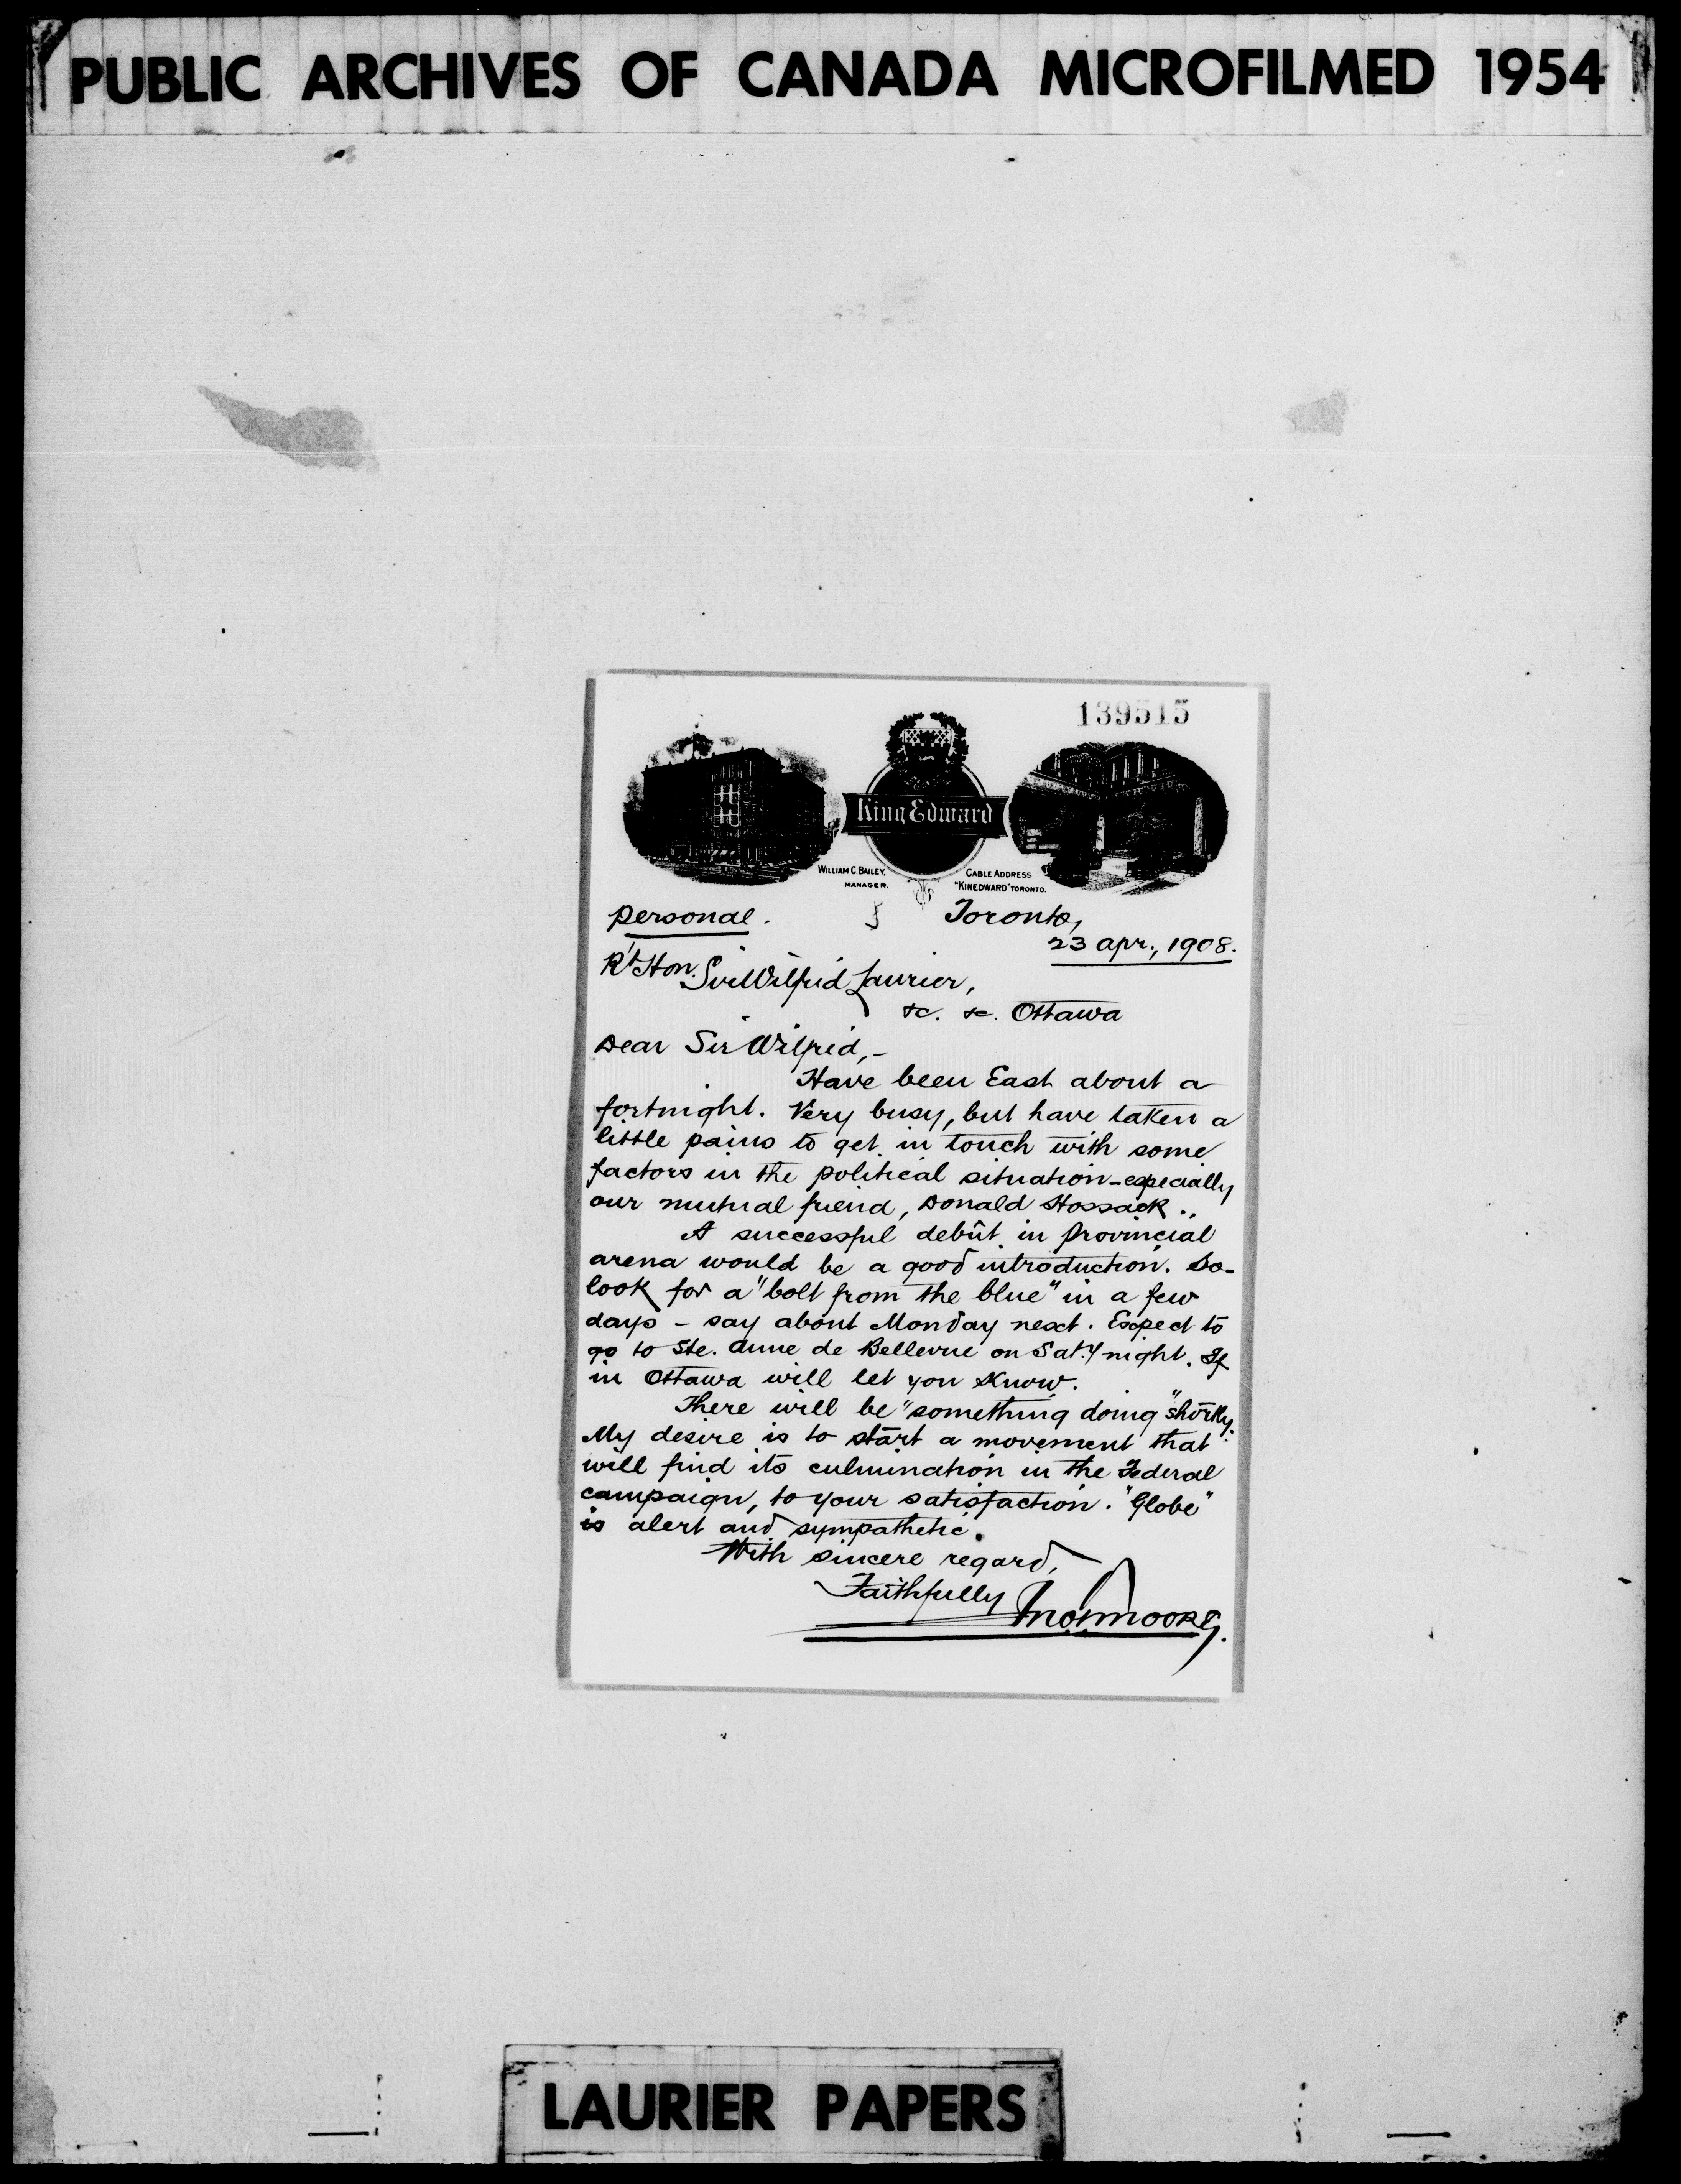 PUBLIC ARCHIVES OF CANADA MICROFILMED 1954
139515
King Edward
WILLIAM C. BAILEY,
MANAGER.
CABLE ADDRESS
"KINEDWARD" TORONTO.
Personal.
Toronto,
23 Apr., 1908.
Rt Hon. Sir Wilfrid Laurier,
&c. &c. Ottawa
Dear Sir Wilfrid,-
Have been East about a
fortnight. Very busy, but have taken a
little pains to get in touch with some
factors in the political situation - especially
our mutual friend, Donald Hossack.
A successful debût in Provincial
arena would be a good introduction. So -
look for a "bolt from the blue" in a few
days - say about Monday next. Expect to
go to Ste. Anne de Bellevue on Sat.y night. If
in Ottawa will let you know.
There will be "something doing" shortly.
My desire is to start a movement that
will find its culmination in the Federal
campaign, to your satisfaction. "Globe"
is alert and sympathetic.
With sincere regard,
Faithfully
Moore.
LAURIER PAPERS